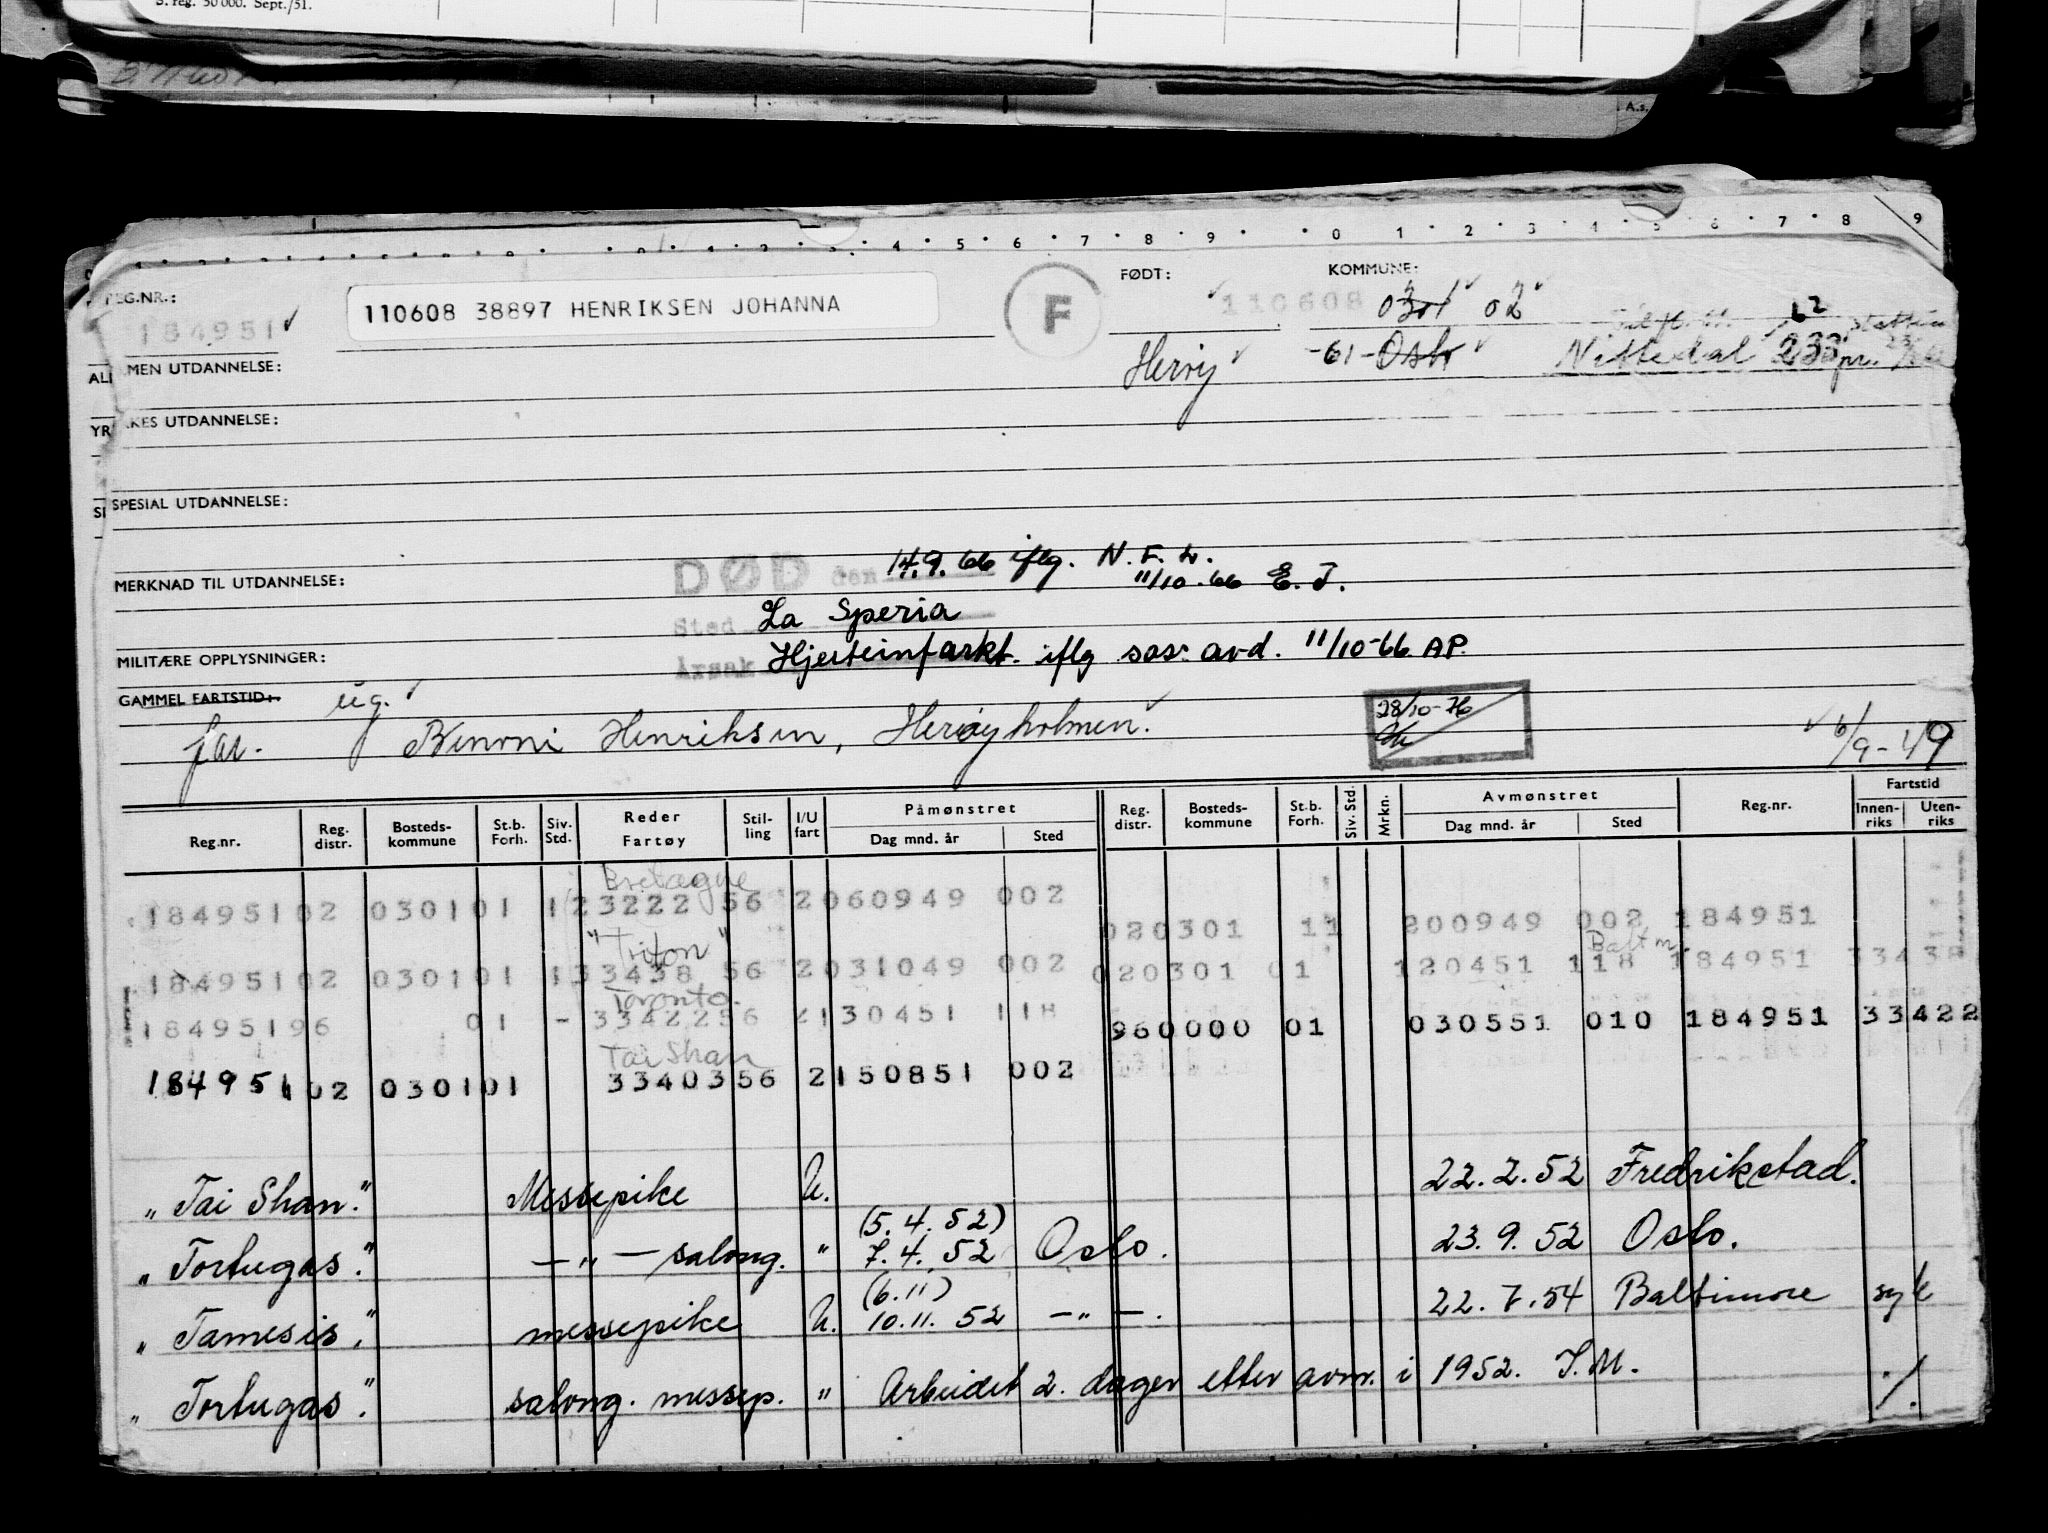 S. reg. 50 000. Sept./51.
A.s.
4 5 6 7 8 9 0 1 2 3 4 5 6 7 8 9
EG.NR.: 110608 38897 HENRIKSEN JOHANNA F FØDT: KOMMUNE:
184951 110608 0301 02
Herøy -61- Oslo Nittedal 233
ALMEN UTDANNELSE:
YRKES UTDANNELSE:
SPESIAL UTDANNELSE:
MERKNAD TIL UTDANNELSE:
DØD den 14.9.66 iflg. N.F.L.
11/10-66 E.J.
Sted La Speria
MILITÆRE OPPLYSNINGER:
Årsak Hjerteinfarkt iflg sos. avd. 11/10-66 AP.
GAMMEL FARTSTID: ug.
far. Benoni Henriksen, Herøyholmen. 28/10-76 6/9-49
Reg.nr. Reg. distr. Bosteds-kommune St.b. Forh. Siv. Std. Reder Fartøy Stil-ling I/U fart Påmønstret Dag mnd. år Sted Reg. distr. Bosteds-kommune St.b. Forh. Siv. Std. Mrkn. Avmønstret Dag mnd. år Sted Reg.nr. Fartstid Innen-riks Uten-riks
Bretagne
184951 02 0301 01 1 23222 56 2 060949 002 02 0301 11 200949 002 184951
"Triton" Baltm.
184951 02 0301 01 1 33438 56 2 031049 002 02 0301 01 120451 118 184951 33438
Toronto.
184951 96 01 - 33422 56 2 130451 118 96 0000 01 030551 010 184951 33422
Tai Shan
184951 02 0301 01 33403 56 2 150851 002
"Tai Shan." Messepike U. 22.2.52 Fredrikstad.
(5.4.52)
"Tortugas." -"- salong. " 7.4.52 Oslo. 23.9.52 Oslo.
(6.11)
"Tamesis." messepike U. 10.11.52 -"-. 22.7.54 Baltimore syk
"Tortugas." salong. messep. " Arbeidet 2. dager etter avm. i 1952. J.M. ./.